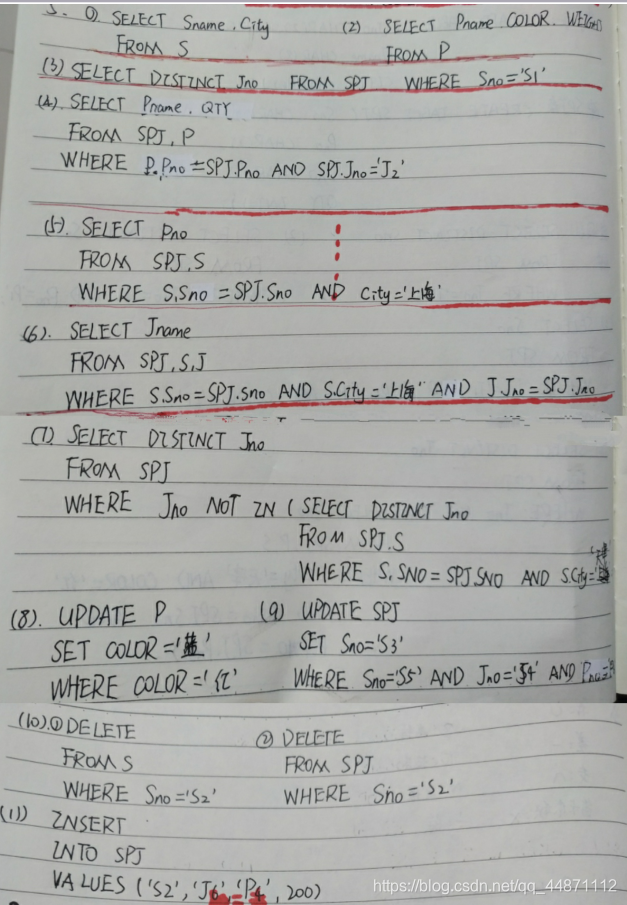 5. ① SELECT Sname, City (2) SELECT Pname COLOR. WEIGH
FROM S FROM P
(3) SELECT DISTINCT Jno FROM SPJ WHERE Sno='S1'
(4). SELECT Pname, QTY
FROM SPJ, P
WHERE P.Pno=SPJ.Pno AND SPJ.Jno='J2'
(5). SELECT Pno
FROM SPJ,S
WHERE S.Sno=SPJ.Sno AND City='上海'
(6). SELECT Jname
FROM SPJ,S,J
WHERE S.Sno=SPJ.Sno AND S.City='上海' AND J.Jno=SPJ.Jno
(7) SELECT DISTINCT Jno
FROM SPJ
WHERE Jno NOT IN (SELECT DISTINCT Jno
FROM SPJ.S
WHERE S.SNO=SPJ.SNO AND S.City='
(8). UPDATE P (9) UPDATE SPJ
SET COLOR='蓝' SET Sno='S3'
WHERE COLOR='红' WHERE Sno='S5' AND Jno='J4' AND Pno='
(10).① DELETE ② DELETE
FROM S FROM SPJ
WHERE Sno='S2' WHERE Sno='S2'
(11) INSERT
INTO SPJ
VALUES ('S2','J6','P4',200)
https://blog.csdn.net/qq_44871112